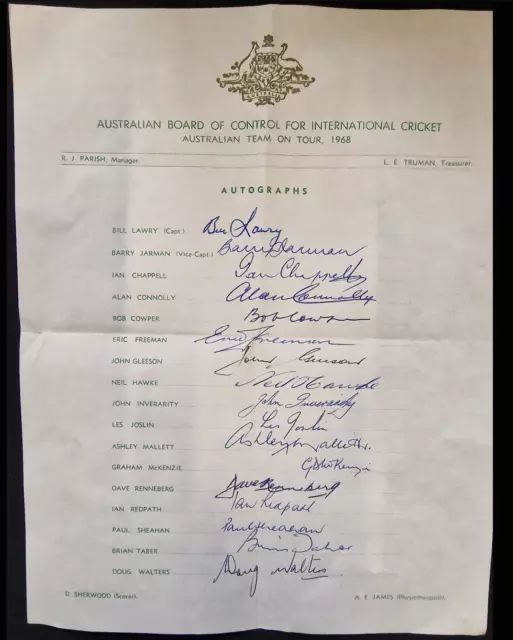 AUSTRALIA
AUSTRALIAN BOARD OF CONTROL FOR INTERNATIONAL CRICKET
AUSTRALIAN TEAM ON TOUR, 1968
R. J. PARISH, Manager. L. E. TRUMAN, Treasurer.
AUTOGRAPHS
BILL LAWRY (Capt.) Bill Lawry
BARRY JARMAN (Vice-Capt.) Barry Jarman
IAN CHAPPELL Ian Chappell
ALAN CONNOLLY Alan Connolly
BOB COWPER Bob Cowper
ERIC FREEMAN Eric Freeman
JOHN GLEESON John Gleeson
NEIL HAWKE Neil Hawke
JOHN INVERARITY John Inverarity
LES JOSLIN Les Joslin
ASHLEY MALLETT Ashley Mallett
GRAHAM McKENZIE G D McKenzie
DAVE RENNEBERG Dave Renneberg
IAN REDPATH Ian Redpath
PAUL SHEAHAN Paul Sheahan
BRIAN TABER Brian Taber
DOUG WALTERS Doug Walters
D. SHERWOOD (Scorer). A. E. JAMES (Physiotherapist).